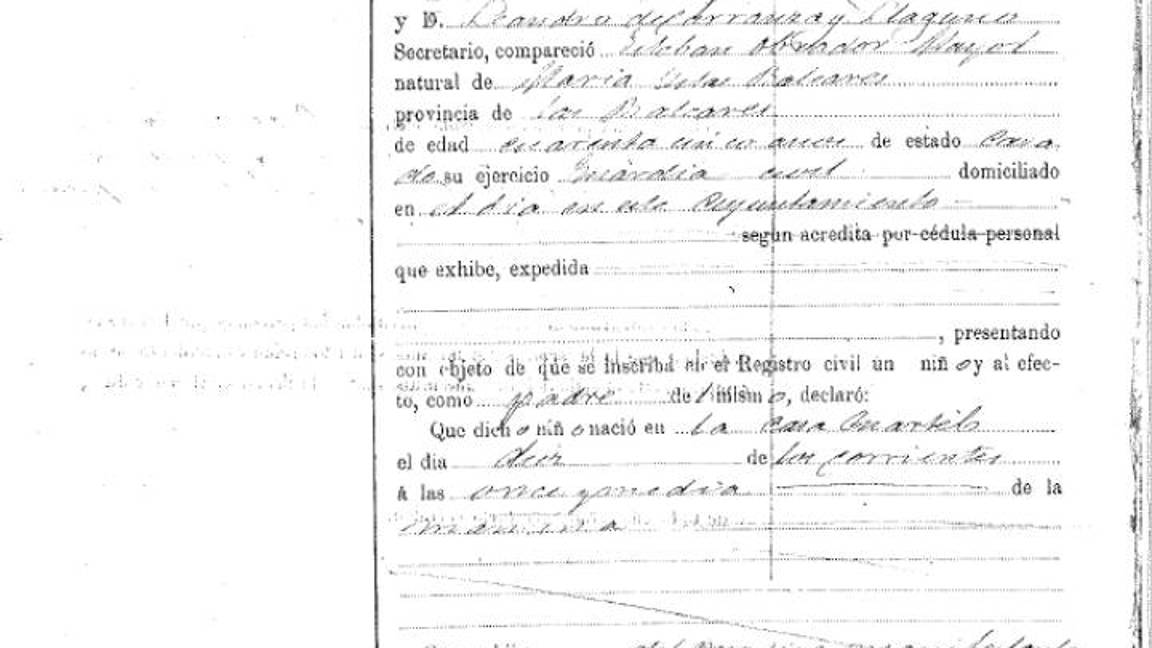 y D. Leandro de Carranza y Llaguno
Secretario, compareció Esteban Obrador Mayol
natural de Maria Islas Baleares
provincia de las Baleares
de edad cuarenta cinco años de estado casa
do su ejercicio Guardia civil domiciliado
en el dia en este Ayuntamiento
segun acredita por cédula personal
que exhibe, expedida
, presentando
con objeto de que se inscriba en el Registro civil un niño y al efec-
to, como padre del mismo, declaró:
Que dicho niño nació en la casa Cuartel
el dia de los corrientes
á las once y media de la
mañana